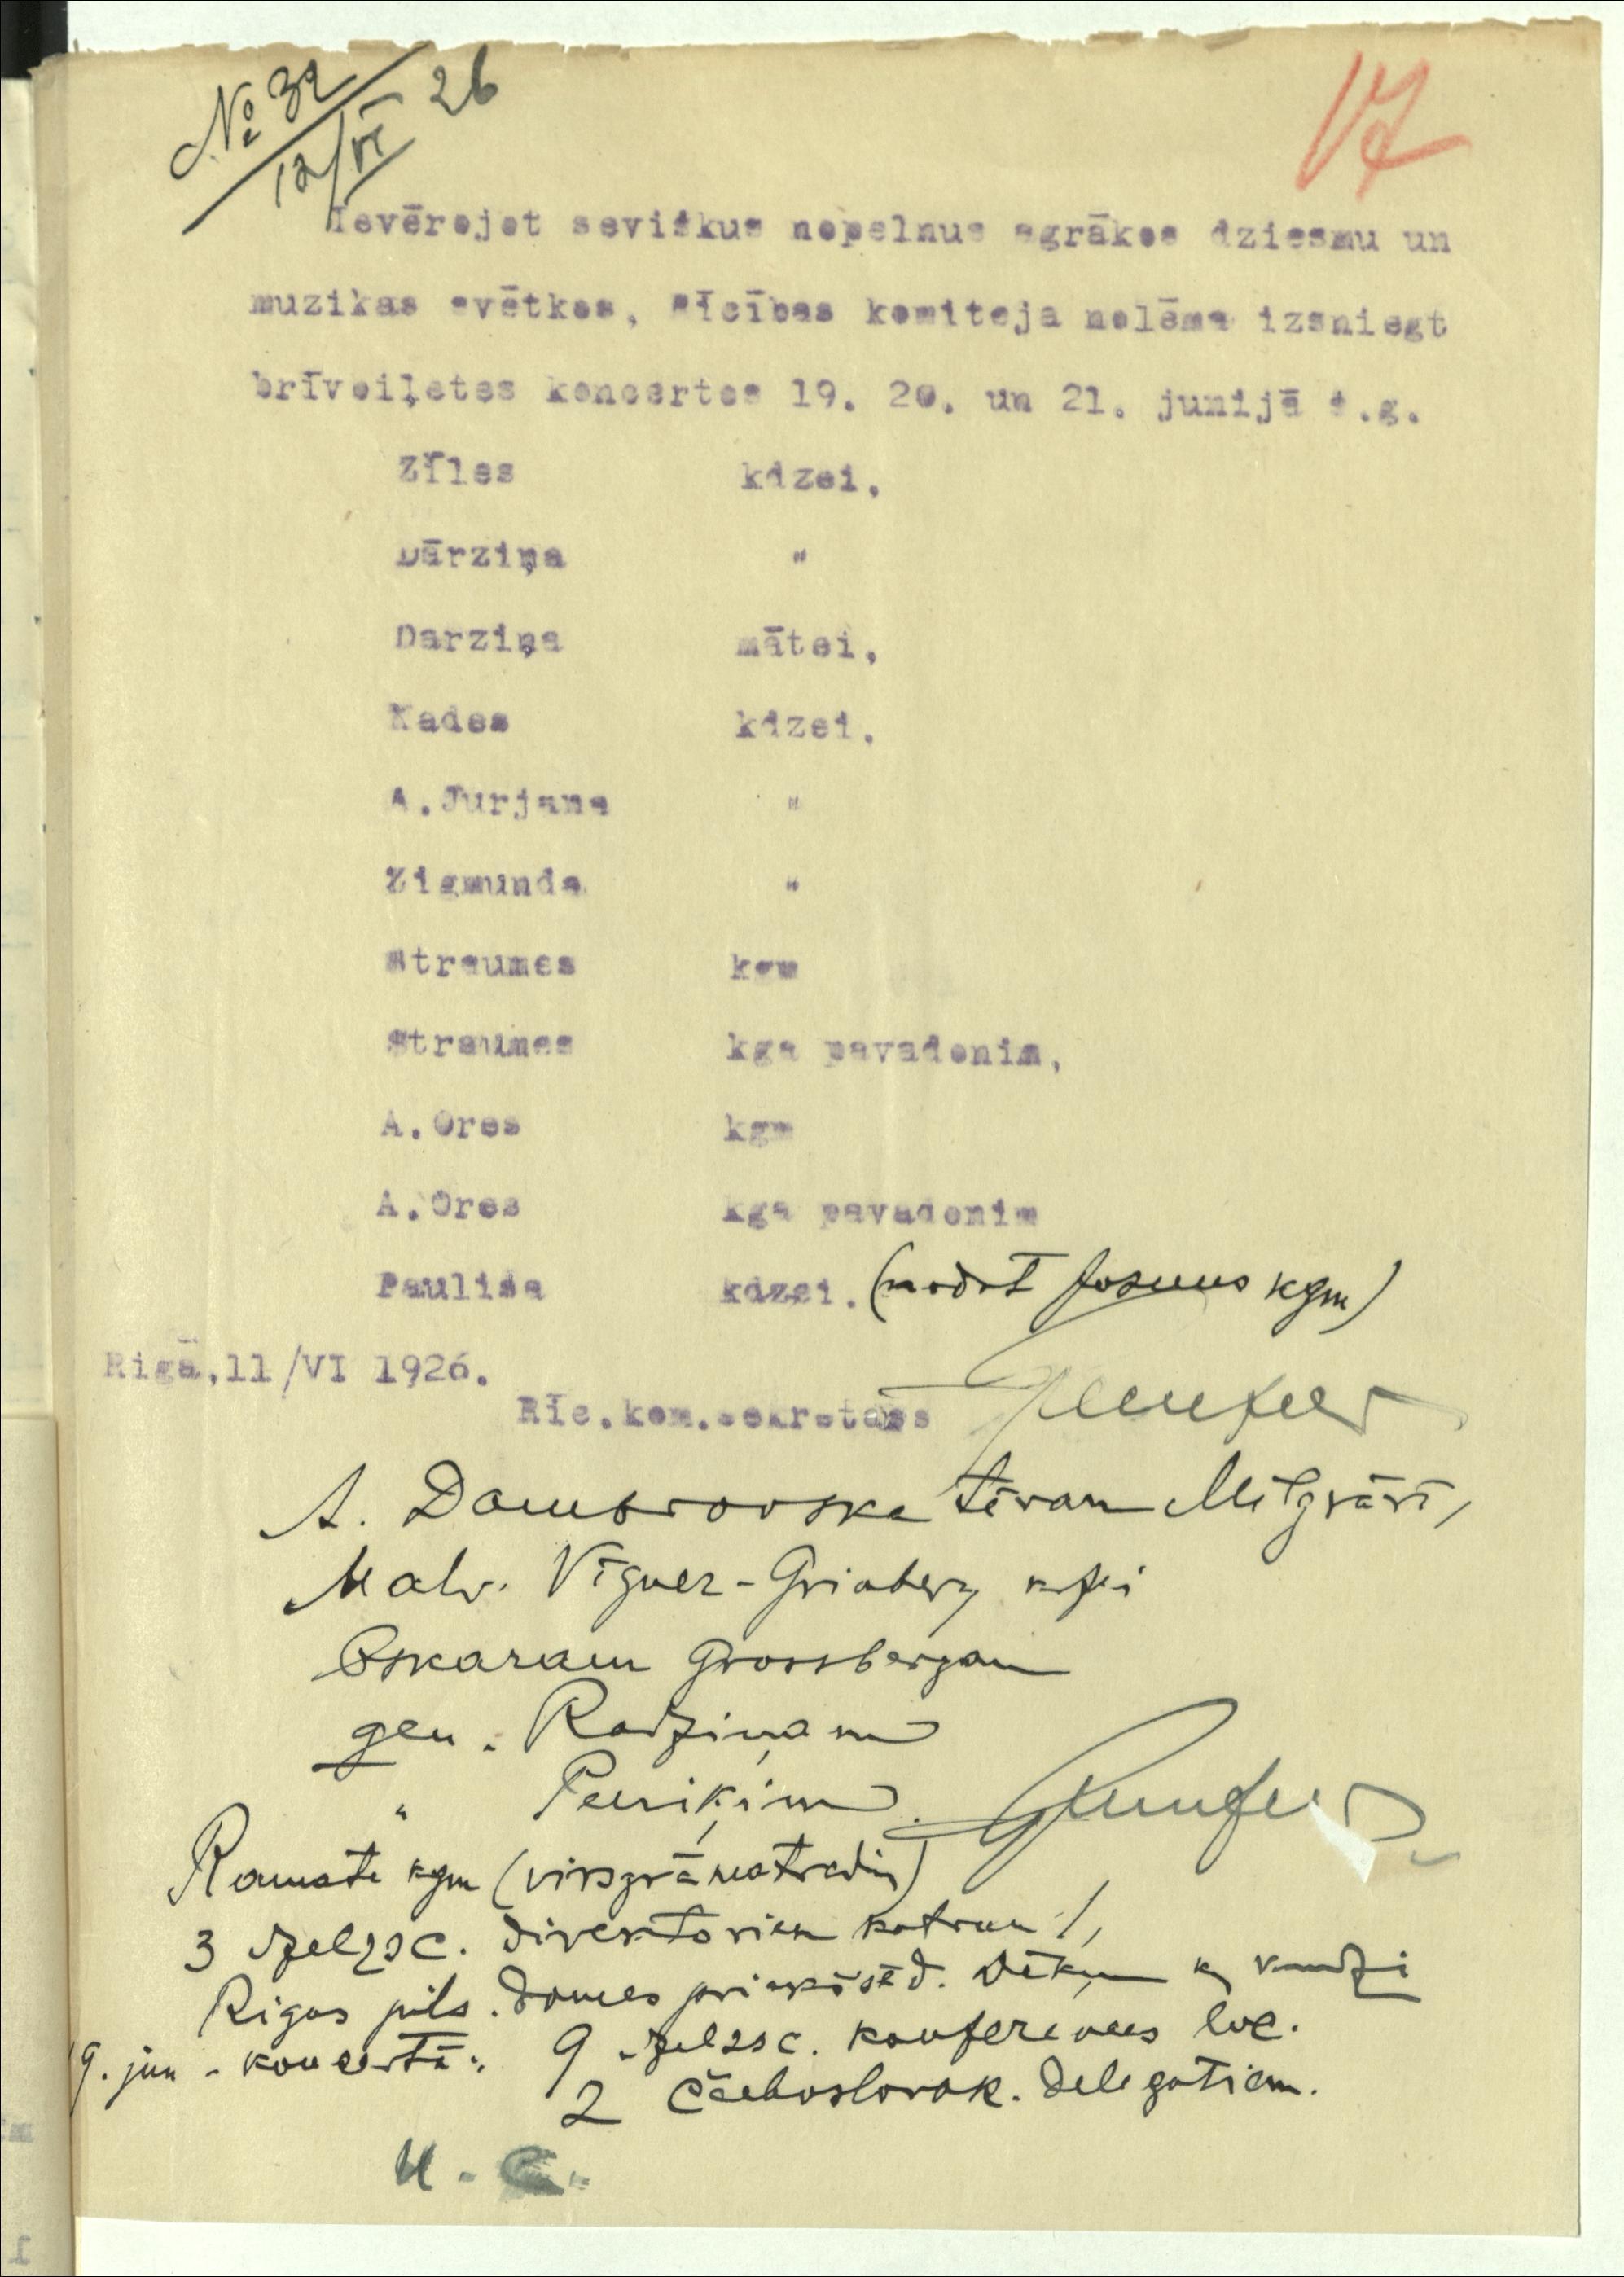 № 32
12/VI 26
17
Ievērojot sevišķus nopelnus agrākos dziesmu un
muzikas svētkos, Rīcības komiteja nolēma izsniegt
brīvbiļetes koncertos 19. 20. un 21. junijā š.g.
Zīles kdzei,
Dārziņa "
Darziņa mātei,
Kades kdzei,
A.Jurjana "
Zigmunda "
Straumes kgm
Straumes kga pavadonim,
A.Ores kgm
A.Ores kga pavadonim
Pauliņa kdzei. (nodot Josuus kgm)
Rigā,11/VI 1926.
Rīc.kom.sekretārs
A. Dombrovska tēvam Mīlgrāvī,
Malv. Vīgner-Grinberg kdzei
Oskaram Grossbergam
gen. Radziņam
" Peniķim
Ramats kgm (virsgrāmatvedis)
3 dzelzsc. direktoriem katram 1,
Rigas pils. domes priekšsēd. kundzi
19. jun. koncertā: 9 dzelzsc. konferences loc.
2 Čechoslovak. delegatiem.
U. c.